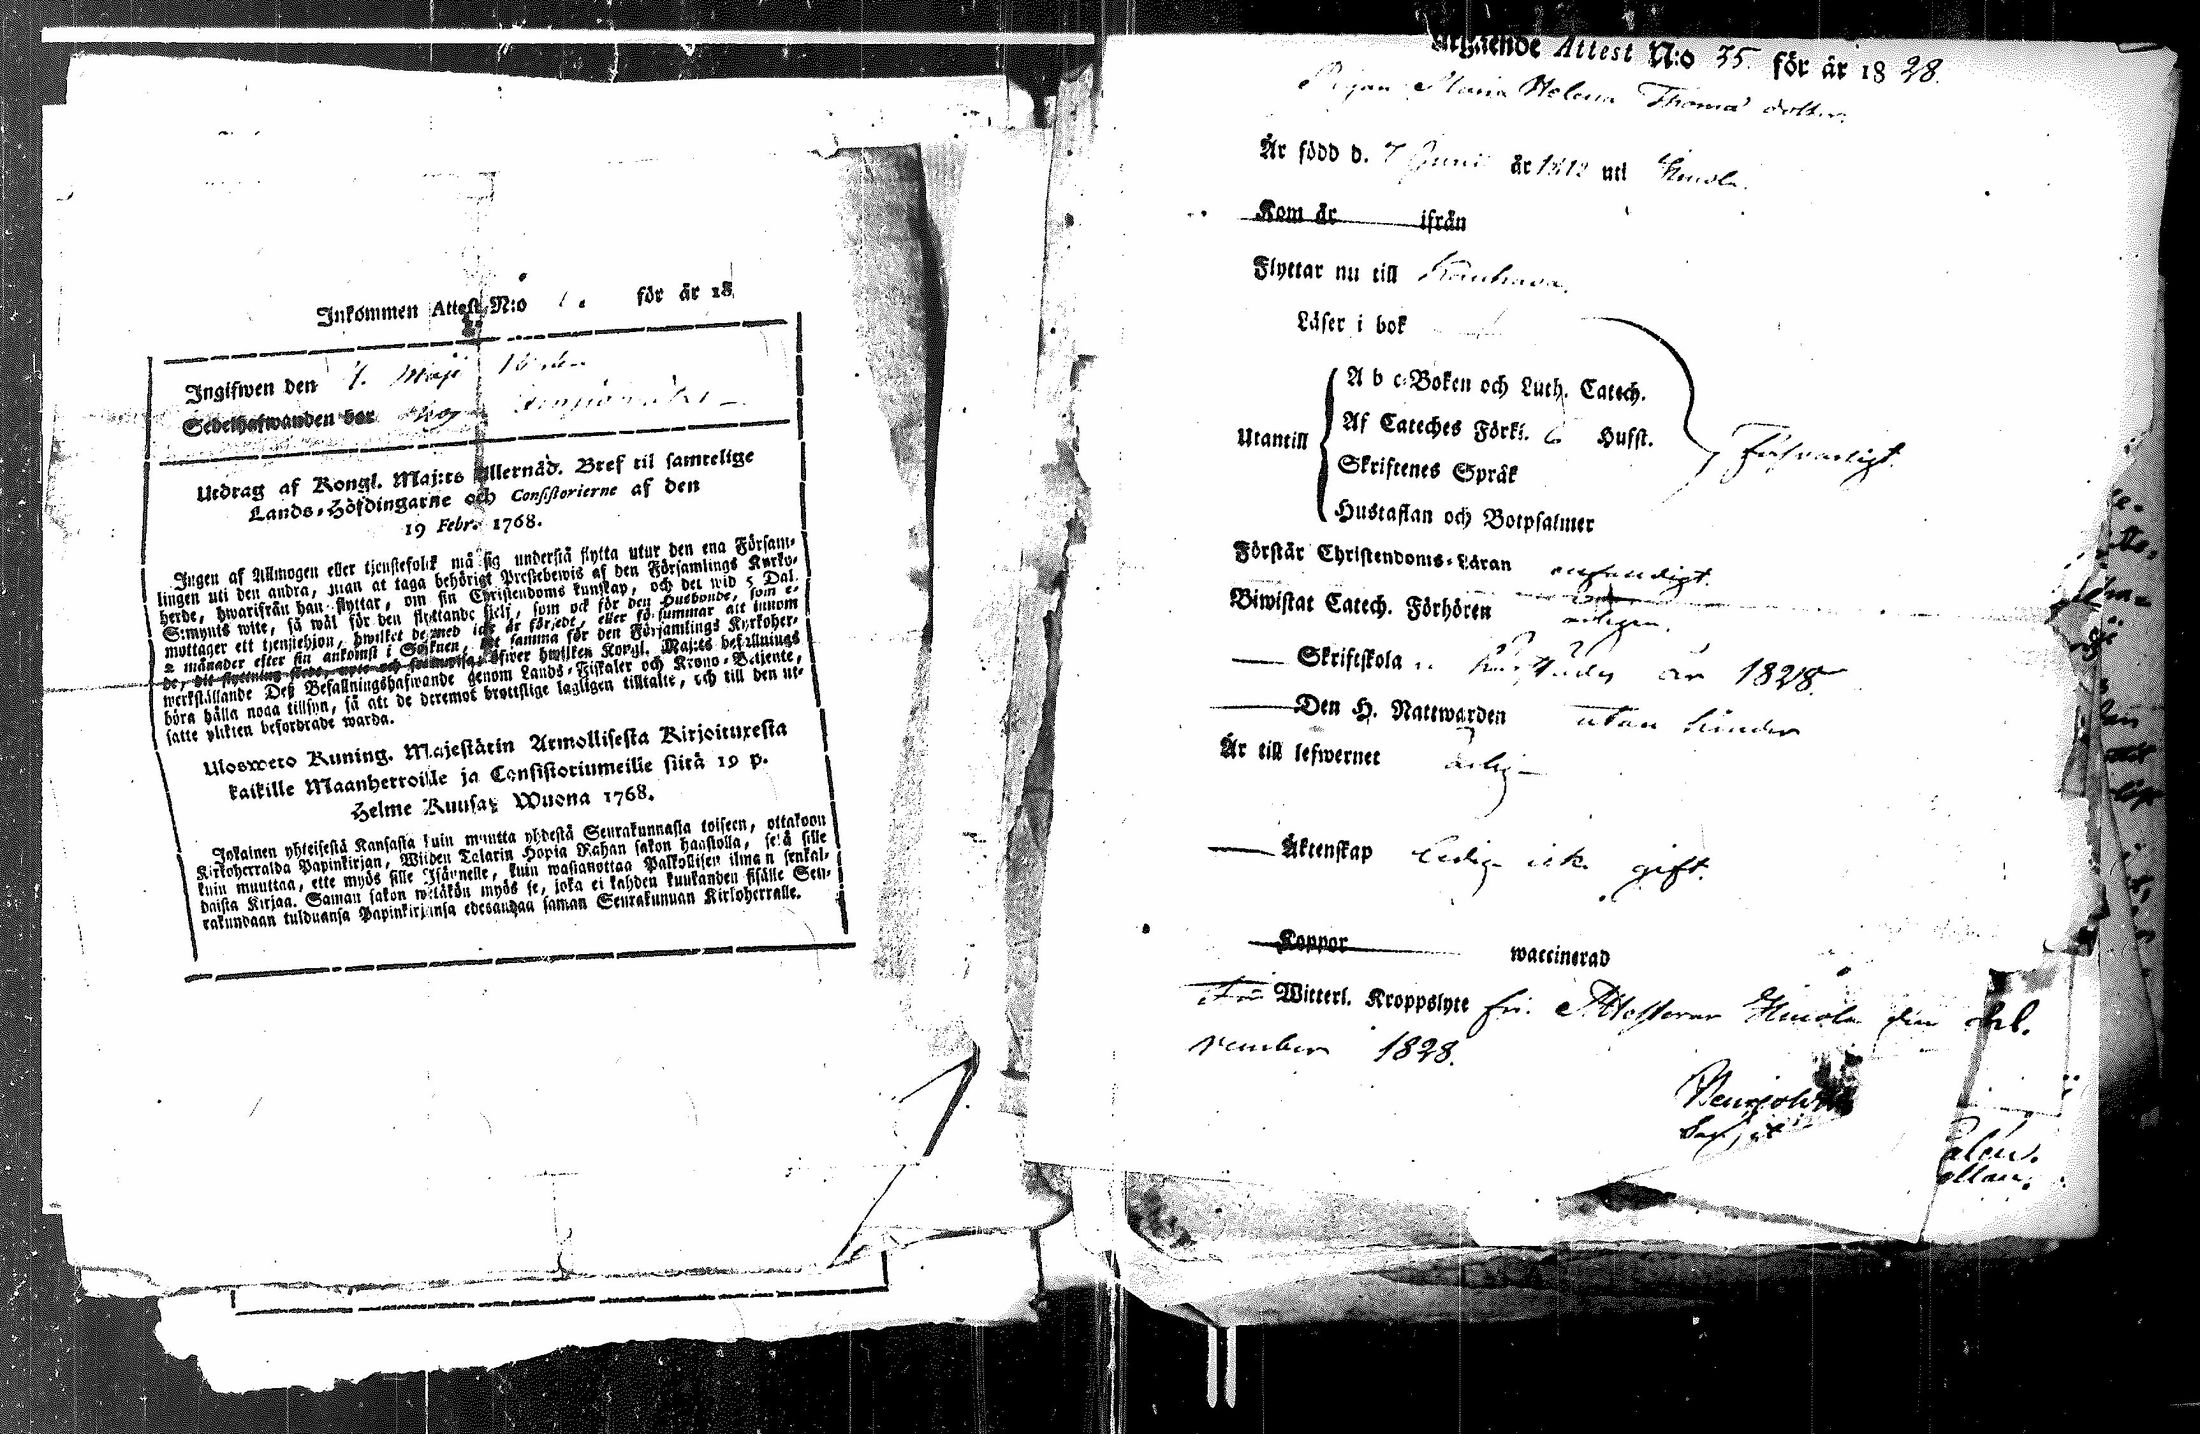 Inkommen Attest N:o för år 18
Ingifwen den 7. Maji
Sedelhafwanden har
Utdrag af Kongl. Maj:ts Allernåd. Bref til samtelige
Lands-Höfdingarne och Consistorierne af den
19 Febr. 1768.
Ingen af Allmogen eller tjenstefolk må sig understå flytta utur den ena Försam-
lingen uti den andra, utan at taga behörigt Prestebewis af den Församlings Kyrko-
herde, hwarifrån han flyttar, om sin Christendoms kunskap, och det wid 5 Dal.
S:mynts wite, så wäl för den flyttande sjelf, som ock för den Husbonde, som e-
mottager ett tjenstehjon, hwilket dermed icke är försedt, eller försummar att innom
2 månader efter sin ankomst i Socknen, samma för den Församlings Kyrkoher-
de, dit flyttning skedt, öfwer hwilken Kongl. Maj:ts befallnings
werkställande Deß Befallningshafwande genom Lands-Fiskaler och Krono-Betjente,
böra hålla noga tillsyn, så att de deremot brottslige lagligen tilltalte, och till den ut-
satte plikten befordrade warda.
Ulosweto Kuning. Majestätin Armollisesta Kirjoituxesta
kaikille Maanherroille ja Consistoriumeille siitä 19 p.
Helme Kuusa Wuona 1768.
Jokainen yhteisestä Kansasta kuin muutta yhdestä Seurakunnasta toiseen, ottakoon
Kirkoherralda Papinkirjan, Wiiden Talarin Hopia Rahan sakon haastolla, sekä sille
kuin muuttaa, ette myös sille Isännelle, kuin wastanottaa Palkollisen ilman senkal-
daista Kirjaa. Saman sakon wetäkön myös se, joka ei kahden kuukauden sisälle Seu-
rakundaan tulduansa Papinkirjansa edesandaa saman Seurakunnan Kirkoherralle.
Utgående Attest N:o 35. för år 1828.
Pigan Maria Helena Thomas dotter
År född d. 7 Junii år 1812 uti
Kom år ifrån
Flyttar nu till
Läser i bok
A b c-Boken och Luth. Catech.
Utantill Af Cateches Förkl. 6 Husst. Försvarligt.
Skriftenes Språk
Hustaflan och Botpsalmer
Förstår Christendoms-Läran
Biwistat Catech. Förhören
Skriftskola år 1828
Den H. Nattwarden utan hinder
Är till lefwernet ärlig
Äktenskap Ledig ifrån gift.
Koppor waccinerad
Witterl. Kroppslyte fri. Attesterar
vember 1828.